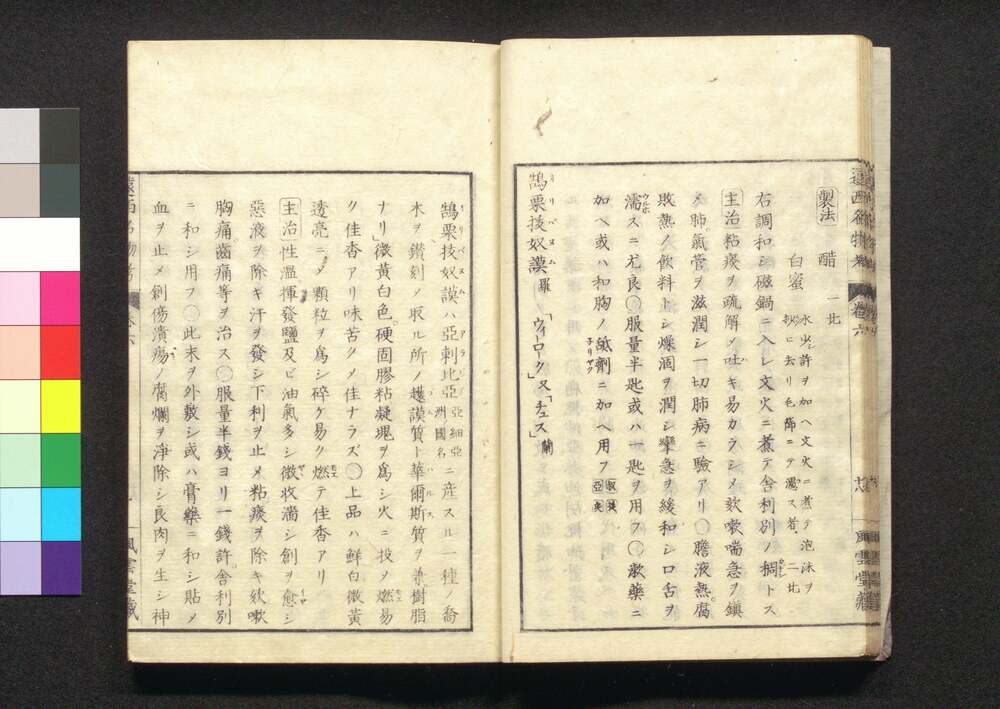 製法 醋 一比
白蜜 水少許ヲ加ヘ文火ニ煮テ泡沫ヲ
ニ去リ毛篩ニテ濾ス者 二比
右調和シ磁鍋ニ入レ文火ニ煮テ舍利別ノ稠トス
主治粘痰ヲ疏解シ吐キ易カラシメ欬嗽喘急ヲ鎮
メ肺氣管ヲ滋潤シ一切肺病ニ驗アリ○膽液熱腐
敗熱ノ飲料トシ燥涸ヲ潤シ攣急ヲ緩和シ口舌ヲ
濡スニ尤良○服量半匙或ハ一匙ヲ用フ○漱藥ニ
加ヘ或ハ和胸ノ䑛劑ニ加ヘ用フ
鵠栗拔奴謨 羅 「ウィーロク」又「チュス」蘭
鵠栗拔奴謨ハ亞剌比亞 亞細亞洲國名 ニ産スル一種ノ喬
木ヲ鑽刻シ取ル所ノ護謨質ト華爾斯質ヲ兼樹脂
ナリ微黄白色硬固膠粘凝塊ヲ爲シ火ニ投メ燃易
ク佳香アリ味苦クメ佳ナラズ○上品ハ鮮白微黄
透亮ニメ顆粒ヲ爲シ碎ケ易ク燃テ佳香アリ
主治性溫揮發鹽及ビ油氣多シ微收濇シ創ヲ愈シ
惡液ヲ除キ汗ヲ發シ下利ヲ止メ粘痰ヲ除キ欬嗽
胸痛齒痛等ヲ治ス○服量半錢ヨリ一錢許舍利別
ニ和シ用フ○此末ヲ外敷シ或ハ膏藥ニ和シ貼メ
血ヲ止メ創傷潰瘍ノ腐爛ヲ淨除シ良肉ヲ生シ神